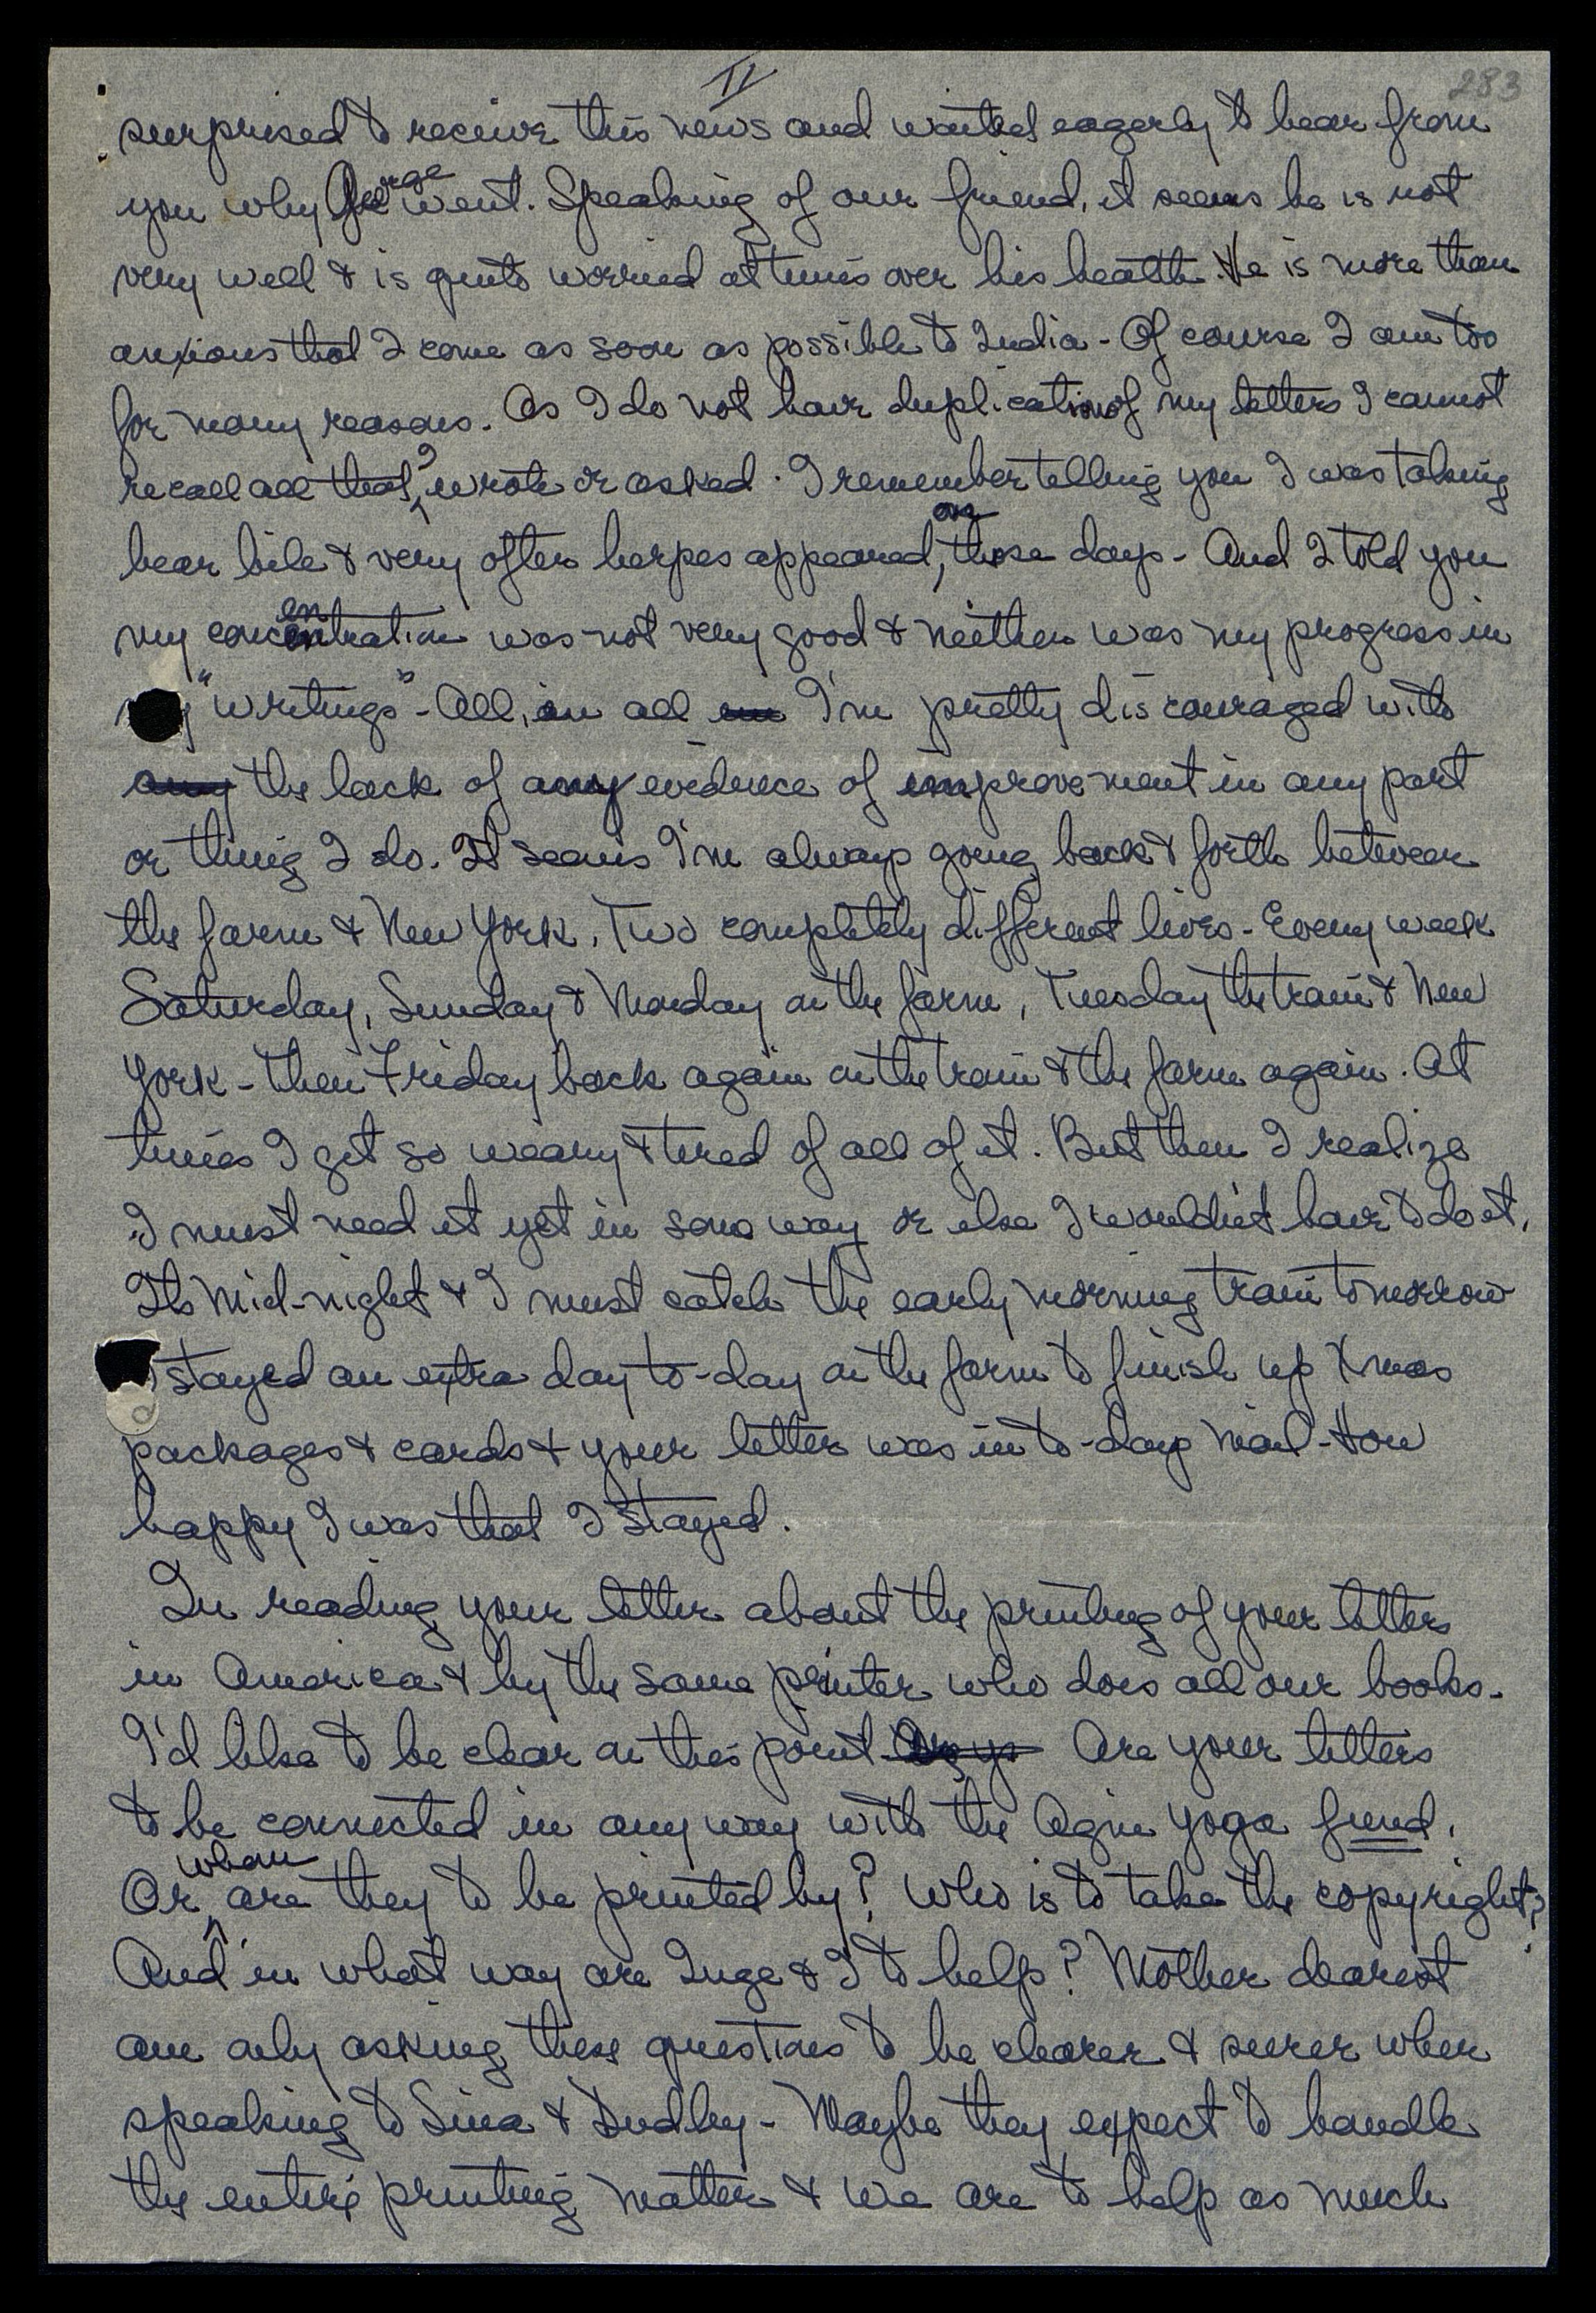 IV
283
surprised to receive this news and waited eagerly to hear from
you why George went. Speaking of our friend, it seems he is not
very well & is quite worried at times over his health. He is more than
anxious that I come as soon as possible to India - Of course I am too
for many reasons. As I do not have duplication of my letters I cannot
recall all that I wrote or asked. I remember telling you I was taking
bear bile & very often herpes appeared, on those days - And I told you
my concentration was not very good & neither was my progress in
my "writings" - All, in all I'm pretty discouraged with
any the lack of any evidence of improvement in any part
or thing I do. It seems I'm always going back & forth between
the farm & New York. Two completely different lives - Every week
Saturday, Sunday & Monday on the farm, Tuesday the train & New
York - then Friday back again on the train & the farm again. At
times I get so weary & tired of all of it. But then I realize
I must need it yet in some way or else I wouldn't have to do it.
Its Mid-night & I must catch the early morning train tomorrow
I stayed an extra day to-day on the farm to finish up Xmas
packages & cards & your letter was in to-days mail - How
happy I was that I stayed.
In reading your letter about the printing of your letters
in America & by the same printer who does all our books.
I'd like to be clear on this point Are your letters
to be connected in any way with the Agni Yoga fund.
Or whom are they to be printed by? Who is to take the copyright?
And in what way are Inge & I to help? Mother dearest
am only asking these questions to be clearer & surer when
speaking to Sina & Dudley - Maybe they expect to handle
the entire printing matter & we are to help as much